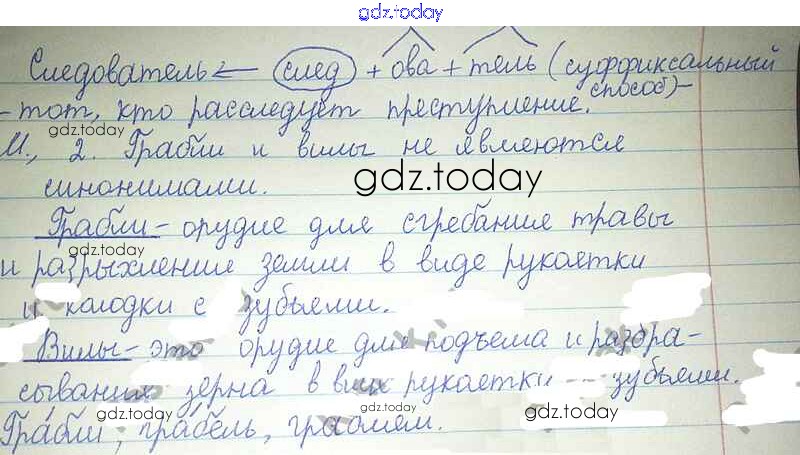 gdz.today
Следователь ← след + ова + тель (суффиксальный
способ) -
- тот, кто расследует преступление.
gdz.today
М., 2. Грабли и вилы не являются
синонимами.
gdz.today
Грабли - орудие для сгребание травы
gdz.today
и разрыхление земли в виде рукоятки
и колодки с зубьями.
Вилы - это орудие для подъема и разбра-
сывания зерна в виде рукоятки зубьями.
gdz.today gdz.today gdz.today
Грабли, грабель, граблям.